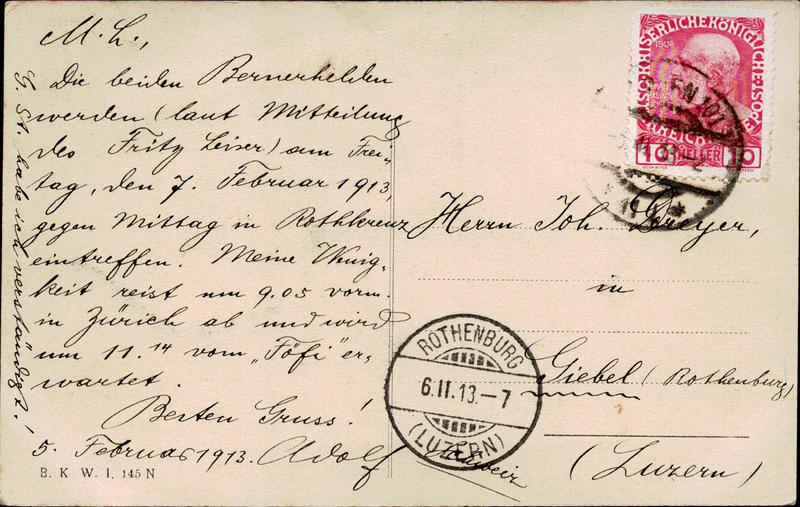 M. L.,
Die beiden Bernerhelden
werden (laut Mitteilung
des Fritz Leiser) am Frei-
tag, den 7. Februar 1913,
gegen Mittag in Rothkreuz
eintreffen. Meine Wenig-
keit reist um 9.05 vorm.
in Zürich ab und wird
um 11.14 vom „Föfi" er-
wartet.
Besten Gruss!
5. Februar 1913. Adolf
G. St. habe ich verständigt!
B. K. W. I. 145 N
KAISERLICHE KÖNIGLICHE
1908
10 HELLER 10
Herrn Joh. Dreyer,
in
Giebel (Rothenburg)
(Luzern)
Schweiz
ROTHENBURG
6.II.13.–7
(LUZERN)